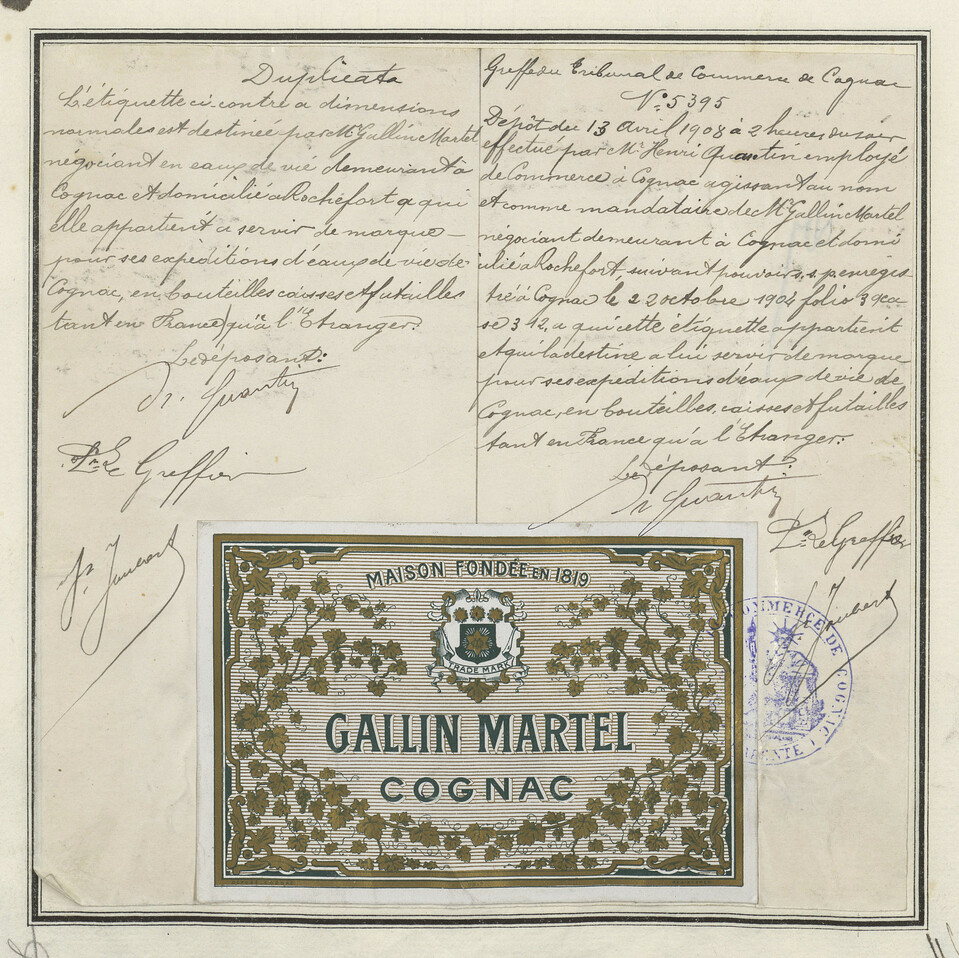 Duplicata
L'étiquette ci-contre a dimensions
normales est destinée par Mr Gallin Martel
négociant en eaux de vie demeurant à
Cognac et domicilié a Rochefort a qui
elle appartient a servir de marque
pour ses expéditions d'eaux de vie de
Cognac, en bouteilles caisses et futailles
tant en France qu'à l'Etranger.
Le déposant:
H. Quantin
Pr Le Greffier
Joubert
Greffe du Tribunal de Commerce de Cognac
No: 5395
Dépôt du 13 avril 1908 à 2 heures du soir
effectué par Mr Henri Quantin employé
de Commerce à Cognac agissant au nom
et comme mandataire de Mr Gallin Martel
négociant demeurant à Cognac et domi
cilié a Rochefort suivant pouvoir s.s.p enregis
tré à Cognac le 22 octobre 1904 folio 39 ca
se 312, a qui cette étiquette appartient
et qui la destine a lui servir de marque
pour ses expéditions d'eaux de vie de
Cognac, en bouteilles, caisses et futailles
tant en France qu'à l'Etranger.
Le déposant:
H Quantin
Pr Le Greffier
Joubert
MAISON FONDÉE EN 1819
TRADE MARK
GALLIN MARTEL
COGNAC
COMMERCE DE COGNAC